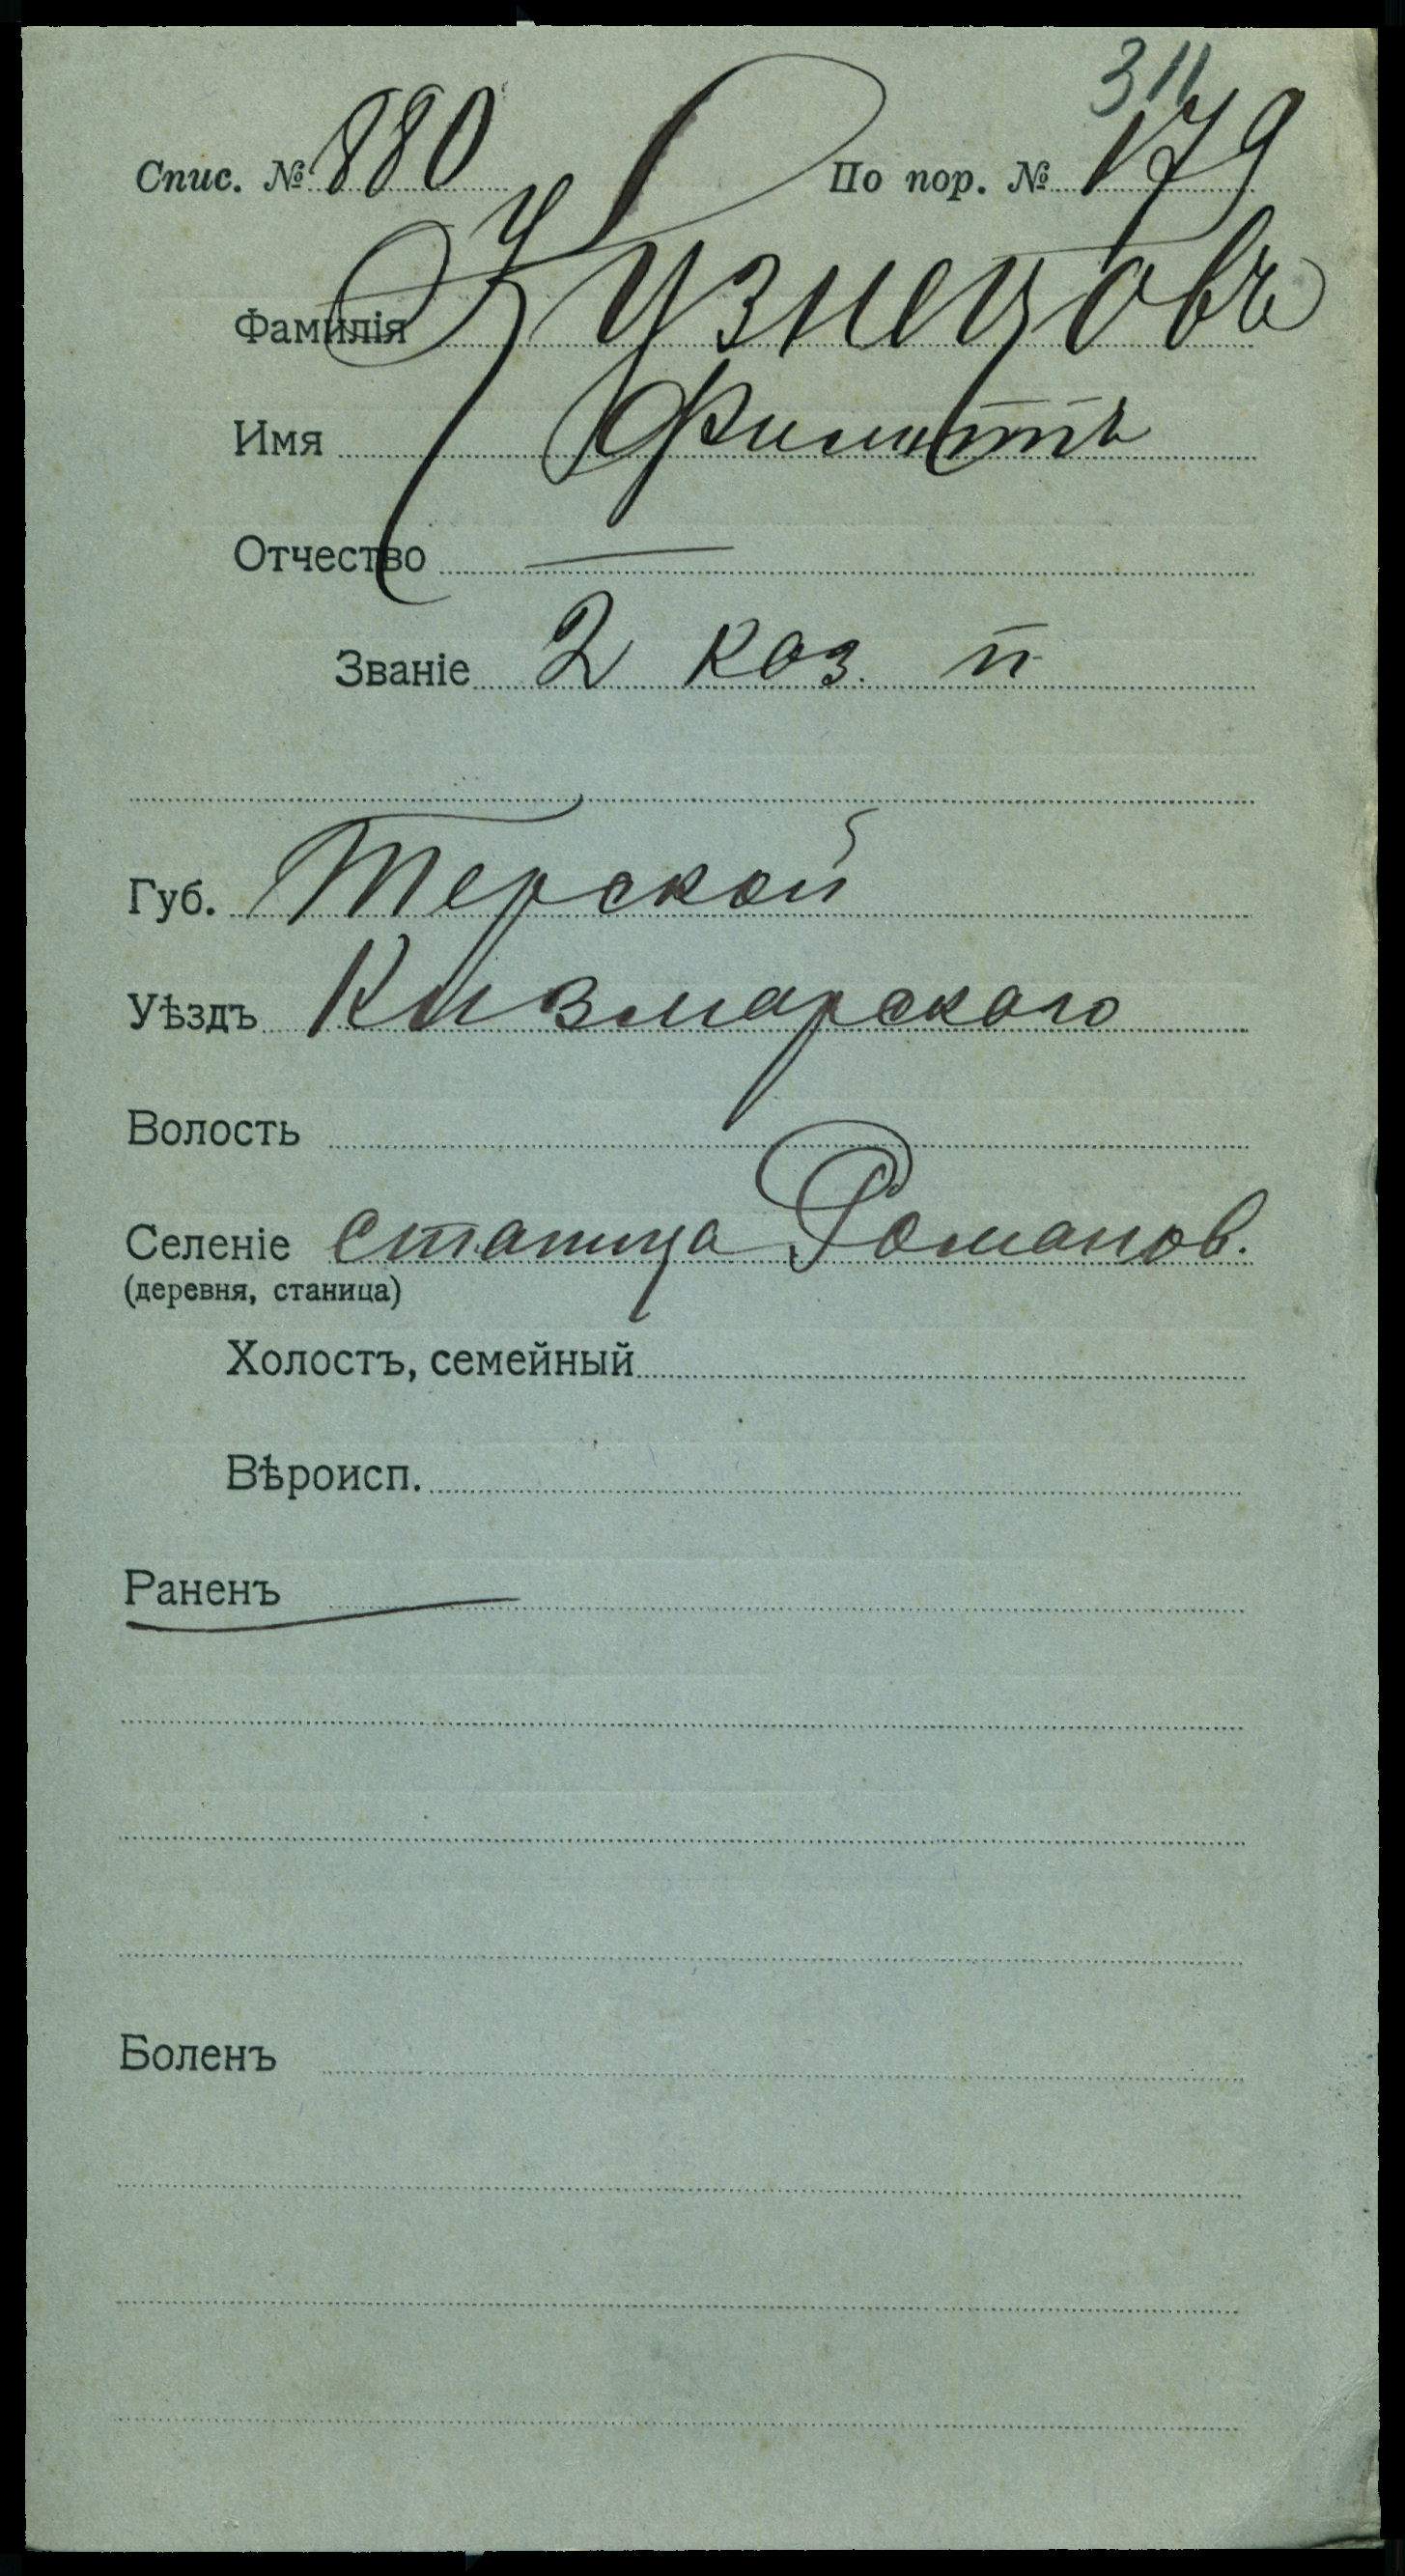 311
Спис. № 880 По пор. № 179
Фамилія Кузнецовъ
Имя Филиппъ
Отчество —
Званіе 2 каз. п
Губ. Терской
Уѣздъ Кизмарского
Волость
Селеніе станица Романов.
(деревня, станица)
Холостъ, семейный
Вѣроисп.
Раненъ
Боленъ